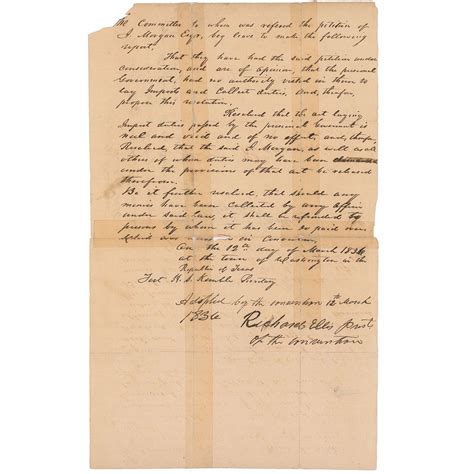 The Committee to whom was refered the petition of
J. Morgan Esqr. beg leave to make the following
report.
That they have had the said petition under
consideration, and are of opinion, that the provisional
Government, had no authority vested in them to
lay Imposts and Collect duties, and, therefore,
propose this resolution.
Resolved that the act laying
Impost duties passed by the provisional Government is
null and void and of no effect, and, therefore,
Resolved, that the said J. Morgan, as well as all
others of whom duties may have been
under the provisions of that act be released
therefrom.
Be it further resolved, that should any
monies have been collected by any
under said law, it shall be refunded to
persons by whom it has been so paid over
in Convention
on the 12th day of March 1836
at the town of Washington in the
Republic of Texas
Test H. S. Kimble Secretary
Adopted by the convention 12th March
1836
Richard Ellis Prest
of the convention